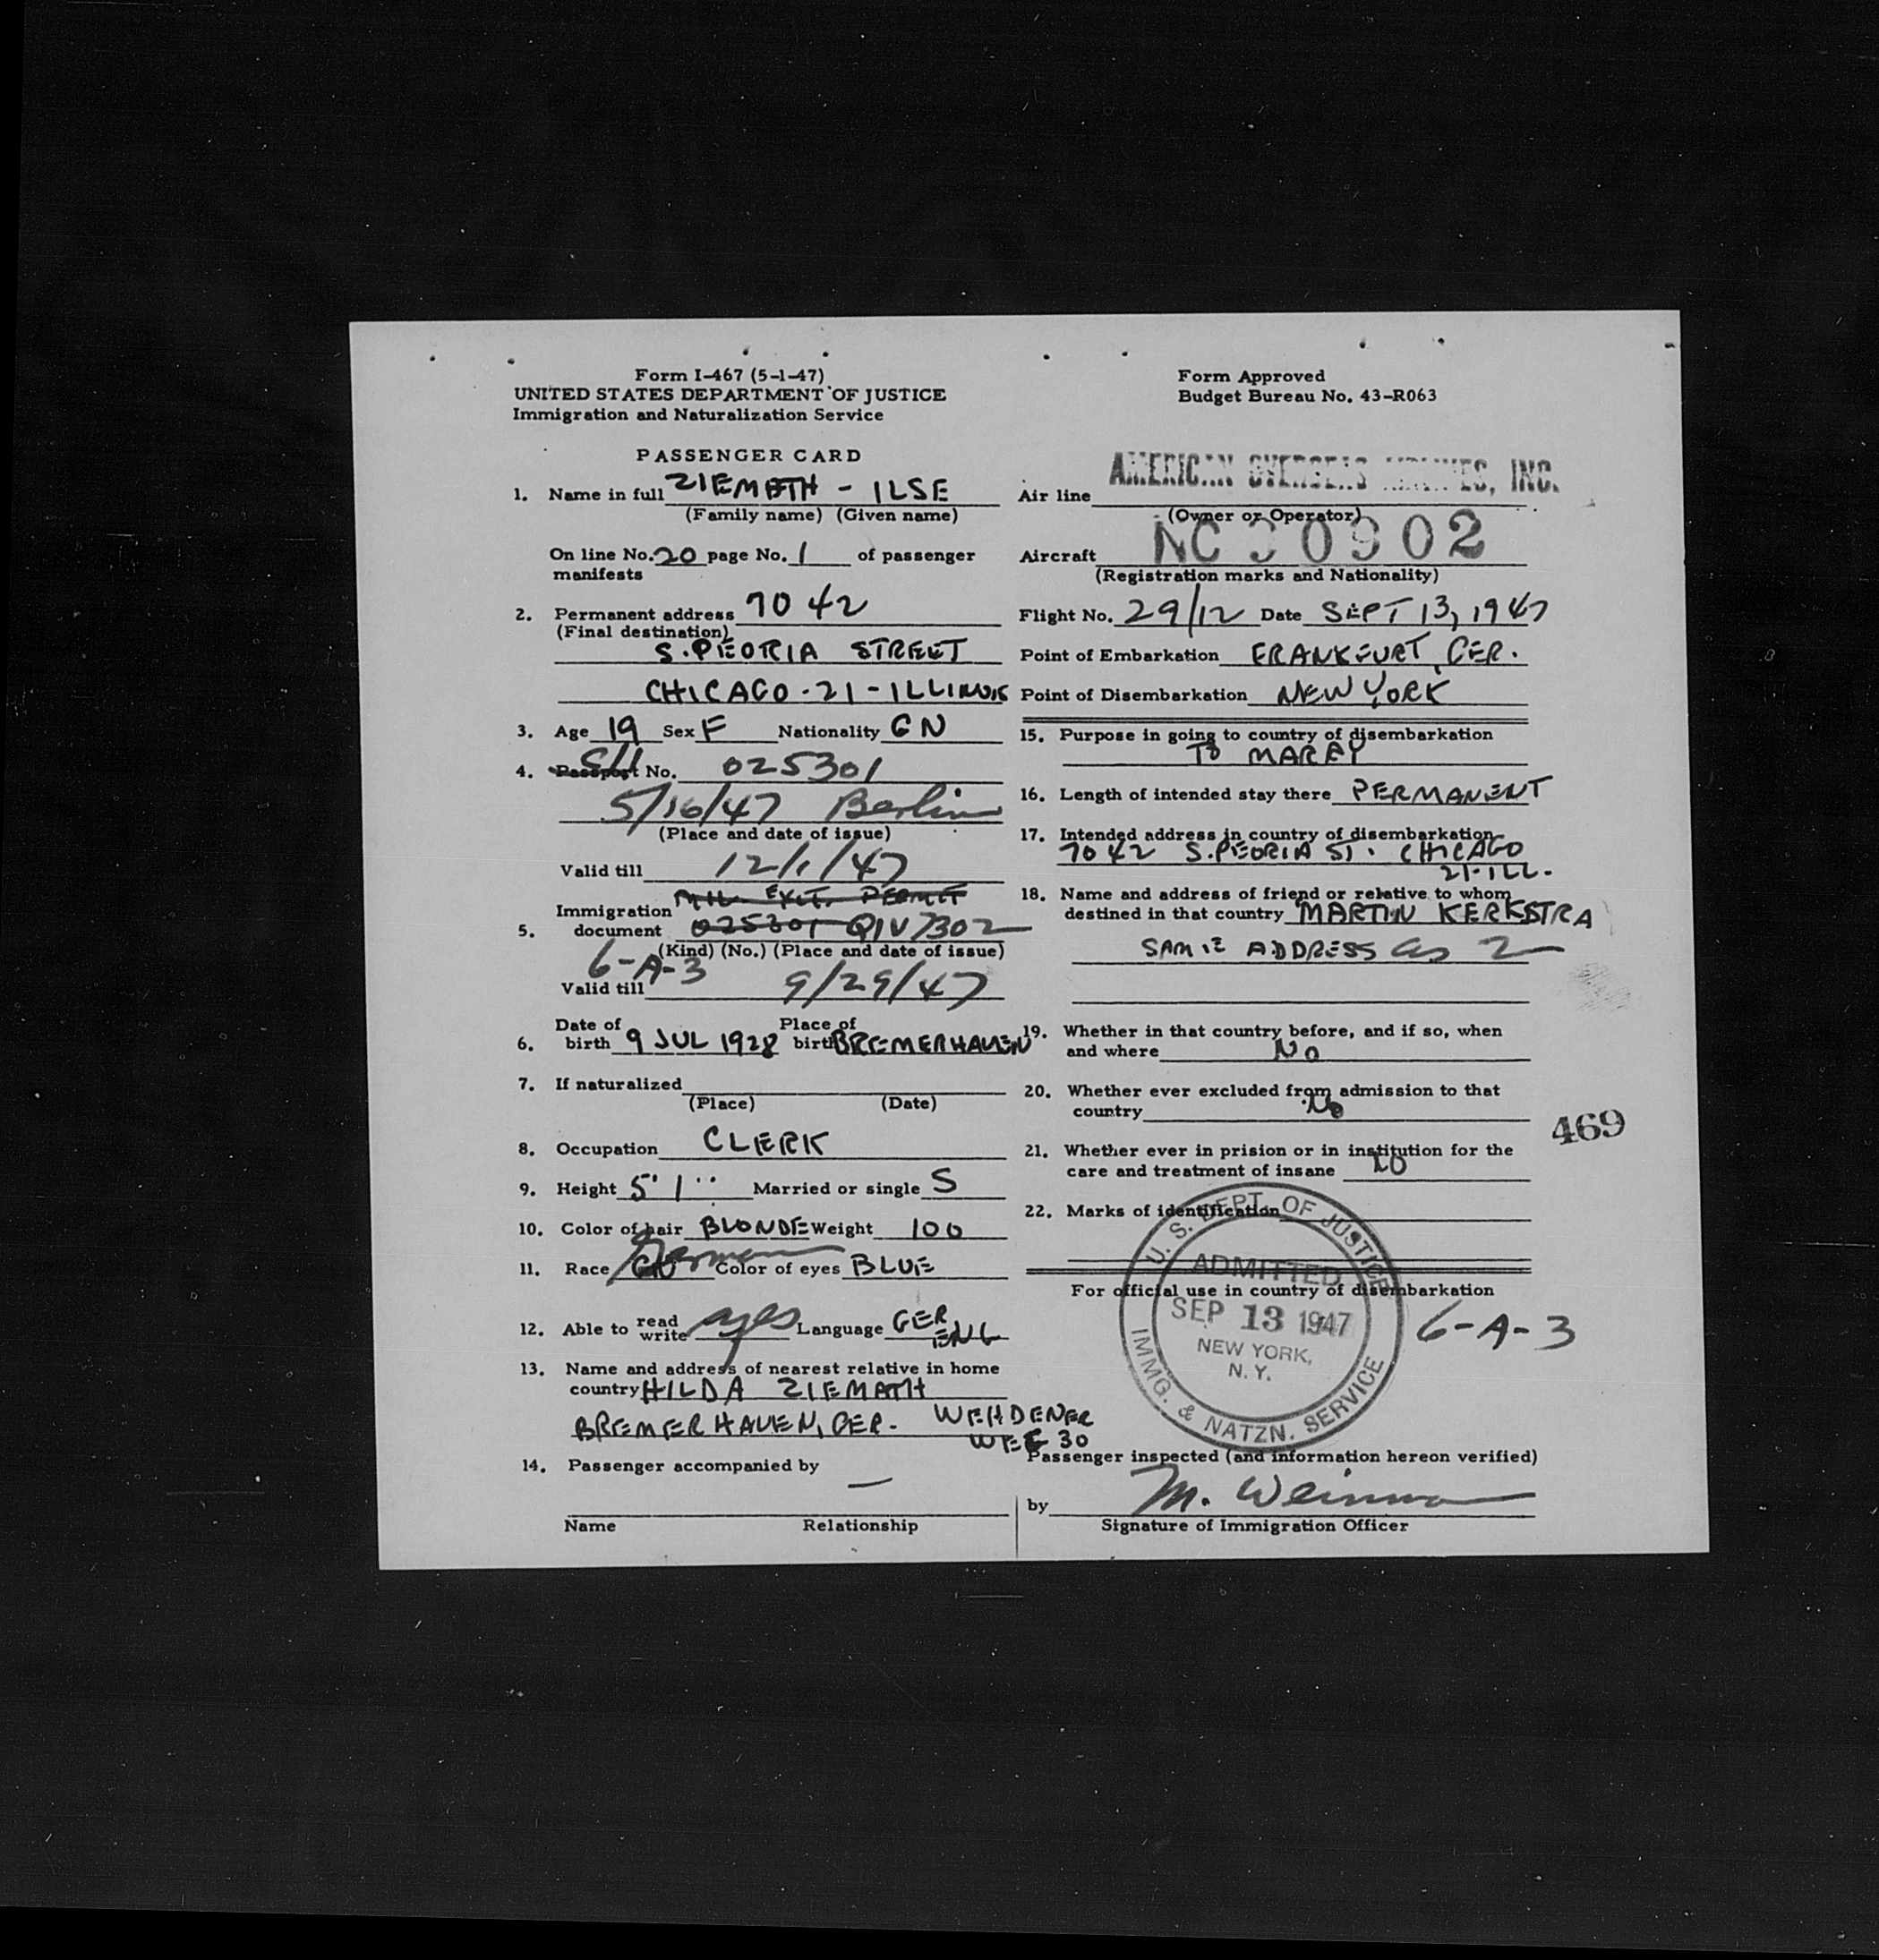 Form I-467 (5-1-47)
UNITED STATES DEPARTMENT OF JUSTICE
Immigration and Naturalization Service
Form Approved
Budget Bureau No. 43-R063
PASSENGER CARD
1. Name in full ZIEMATH - ILSE
(Family name) (Given name)
On line No. 20 page No. 1 of passenger
manifests
2. Permanent address 7042
(Final destination)
S. PEORIA STREET
CHICAGO - 21 - ILLINOIS
3. Age 19 Sex F Nationality GN
4. Passport No. 025301
5/16/47 Berlin
(Place and date of issue)
Valid till 12/1/47
MIL. EXIT. PERMIT
Immigration
5. document 025301 QIV7302
(Kind) (No.) (Place and date of issue)
6-A-3
Valid till 9/29/47
Date of Place of
6. birth 9 JUL 1928 birth BREMERHAVEN
7. If naturalized
(Place) (Date)
8. Occupation CLERK
9. Height 5' 1" Married or single S
10. Color of hair BLONDE Weight 100
11. Race German Color of eyes BLUE
12. Able to read write yes Language GER
ENG
13. Name and address of nearest relative in home
country HILDA ZIEMATH
BREMERHAVEN, GER. WEHDENER
WEG 30
14. Passenger accompanied by
—
Name Relationship
AMERICAN OVERSEAS AIRLINES, INC.
Air line
(Owner or Operator)
Aircraft NC 90902
(Registration marks and Nationality)
Flight No. 29/12 Date SEPT 13, 1947
Point of Embarkation FRANKFURT, GER.
Point of Disembarkation NEW YORK
15. Purpose in going to country of disembarkation
TO MARRY
16. Length of intended stay there PERMANENT
17. Intended address in country of disembarkation
7042 S. PEORIA ST. CHICAGO
21-ILL.
18. Name and address of friend or relative to whom
destined in that country MARTIN KERKSTRA
SAME ADDRESS as 2
19. Whether in that country before, and if so, when
and where No
20. Whether ever excluded from admission to that
country No
21. Whether ever in prision or in institution for the
care and treatment of insane NO
469
22. Marks of identification
For official use in country of disembarkation
U. S. DEPT. OF JUSTICE
ADMITTED
SEP 13 1947
NEW YORK,
N. Y.
IMMG. & NATZN. SERVICE
6-A-3
Passenger inspected (and information hereon verified)
by M.
Signature of Immigration Officer